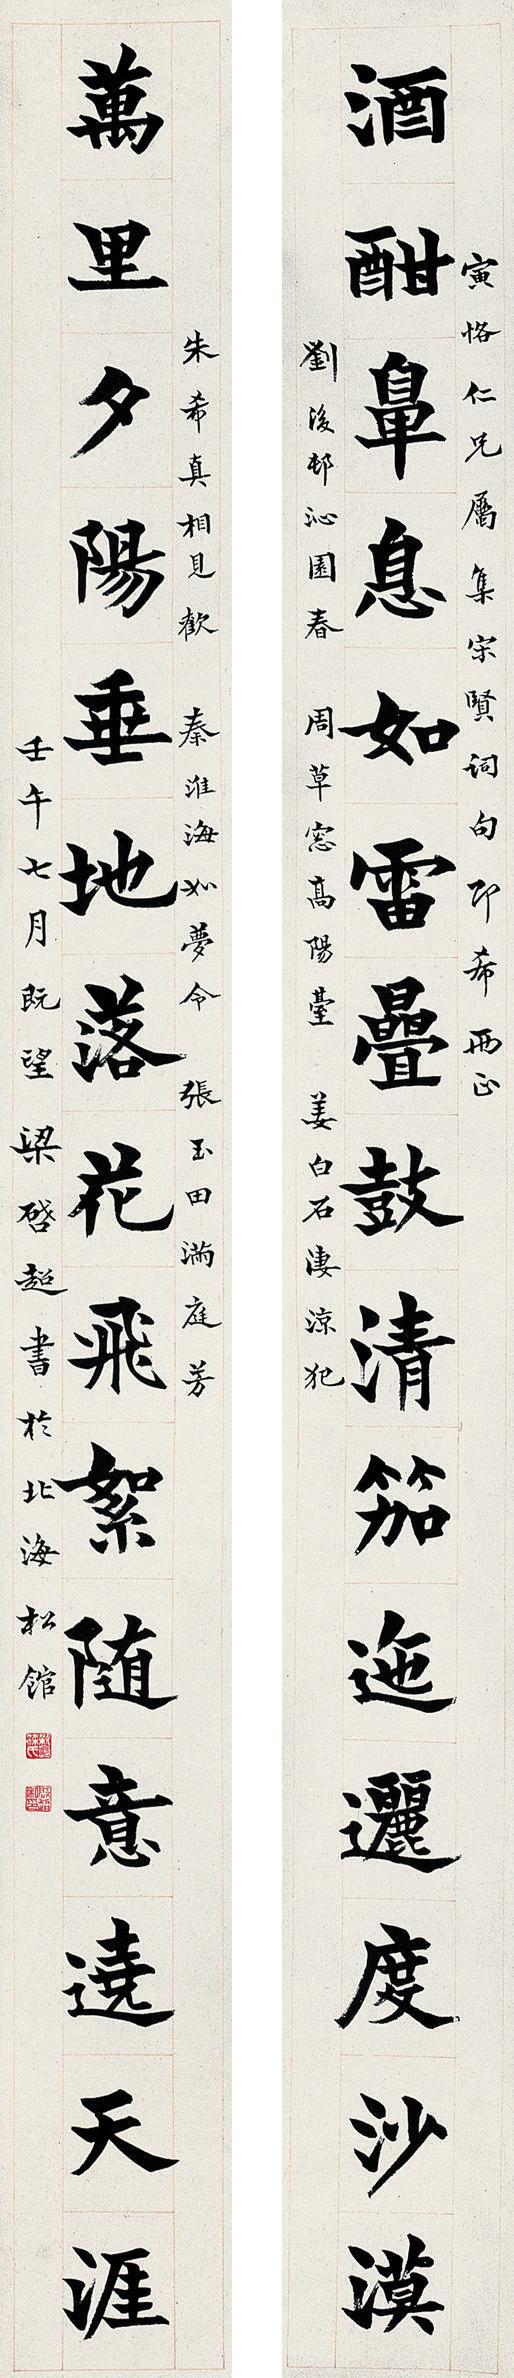 寅恪仁兄屬集宋賢詞句即希兩正
酒酣鼻息如雷疊鼓清笳迤邐度沙漠
劉後邨沁園春 周草窓高陽臺 姜白石淒涼犯
朱希真相見歡 秦淮海如夢令 張玉田滿庭芳
萬里夕陽垂地落花飛絮随意遶天涯
壬午七月既望梁啓超書於北海松館